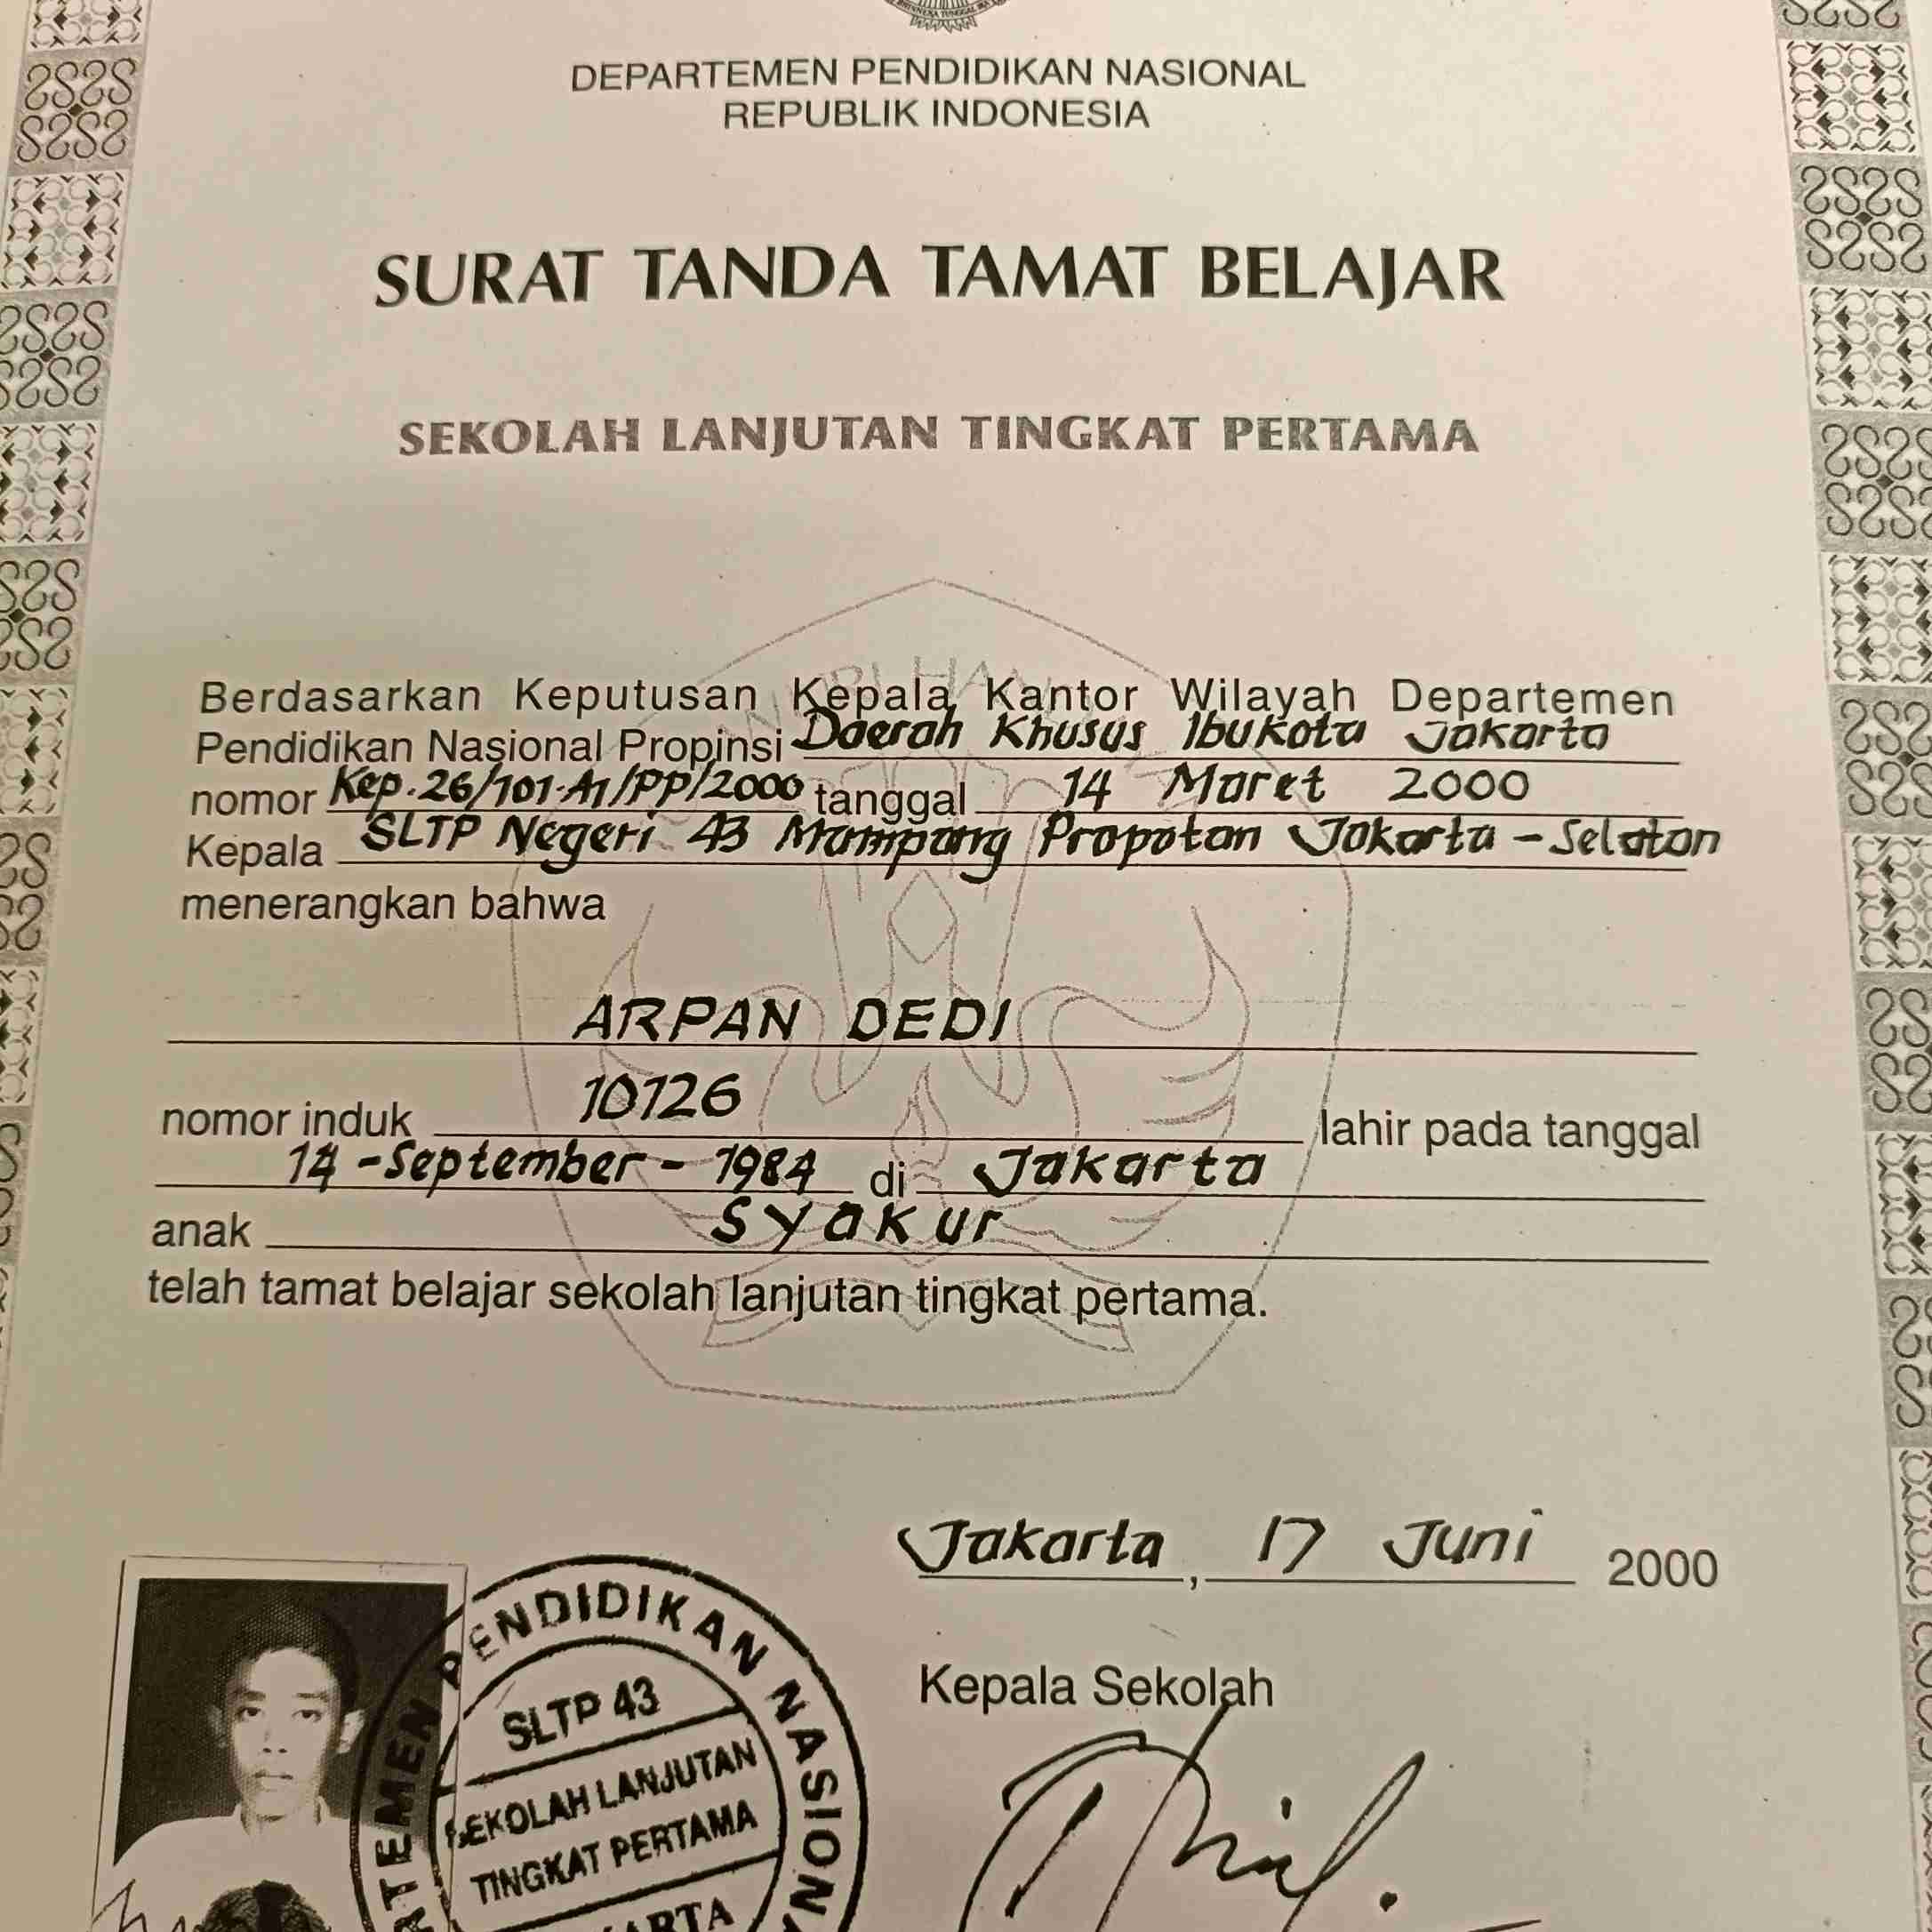 BHINNEKA TUNGGAL IKA
DEPARTEMEN PENDIDIKAN NASIONAL
REPUBLIK INDONESIA
SURAT TANDA TAMAT BELAJAR
SEKOLAH LANJUTAN TINGKAT PERTAMA
Berdasarkan Keputusan Kepala Kantor Wilayah Departemen
Pendidikan Nasional Propinsi Daerah Khusus Ibukota Jakarta
nomor Kep.26/101.A1/PP/2000 tanggal 14 Maret 2000
Kepala SLTP Negeri 43 Mampang Prapatan Jakarta - Selatan
menerangkan bahwa
ARPAN DEDI
nomor induk 10126 lahir pada tanggal
14 - September - 1984 di Jakarta
anak Syakur
telah tamat belajar sekolah lanjutan tingkat pertama.
Jakarta, 17 Juni 2000
Kepala Sekolah
PENDIDIKAN NASIONA
SLTP 43
SEKOLAH LANJUTAN
TINGKAT PERTAMA